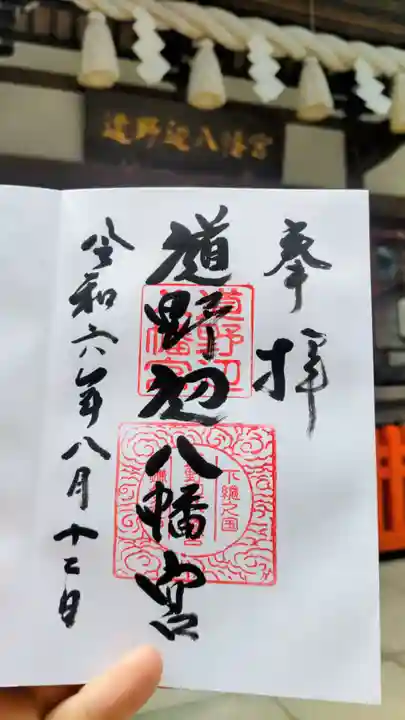 道野辺八幡宮
奉拝
道野辺八幡宮
令和六年八月十二日
道野辺
八幡宮
下總之国